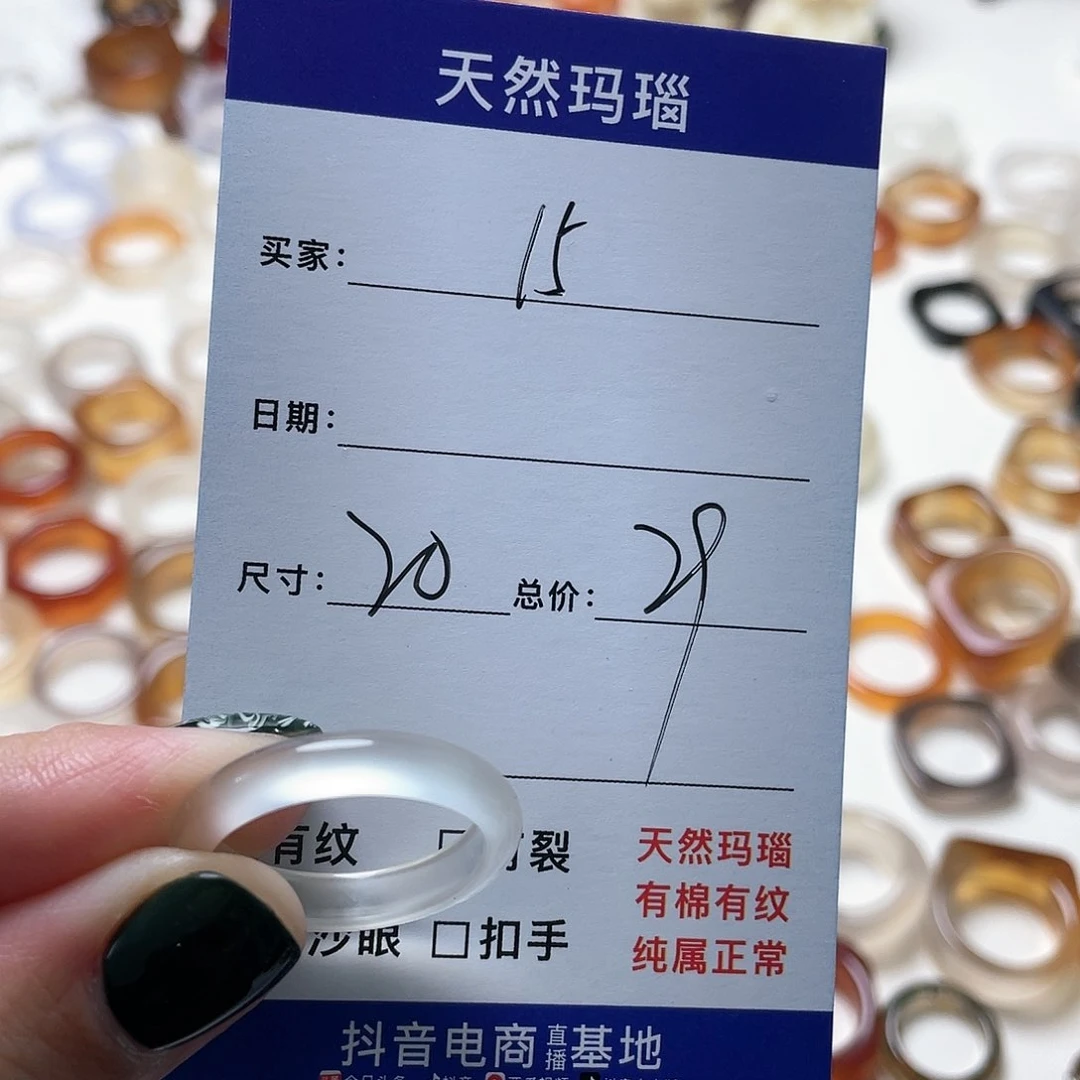 天然玛瑙
买家: 15
日期:
尺寸: 20 总价: 29
有纹 裂
沙眼 □扣手
天然玛瑙
有棉有纹
纯属正常
抖音电商直播基地